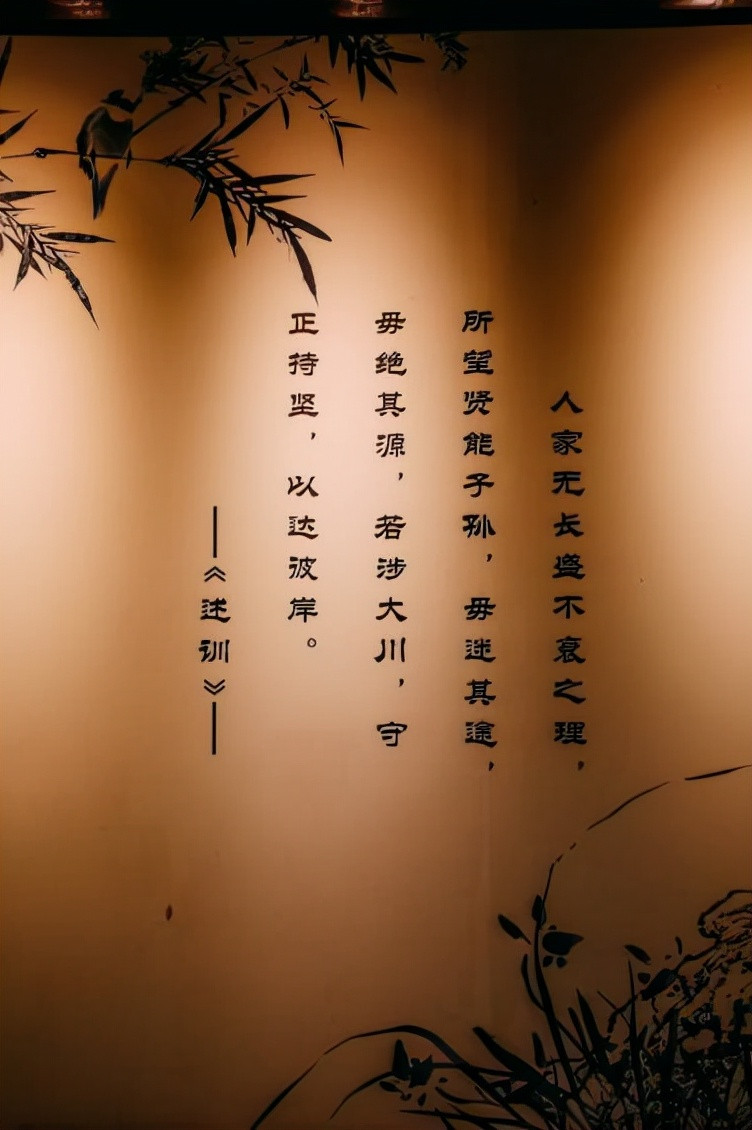 人家无长盛不衰之理，
所望贤能子孙，毋迷其途，
毋绝其源，若涉大川，守
正持坚，以达彼岸。
——《述训》——